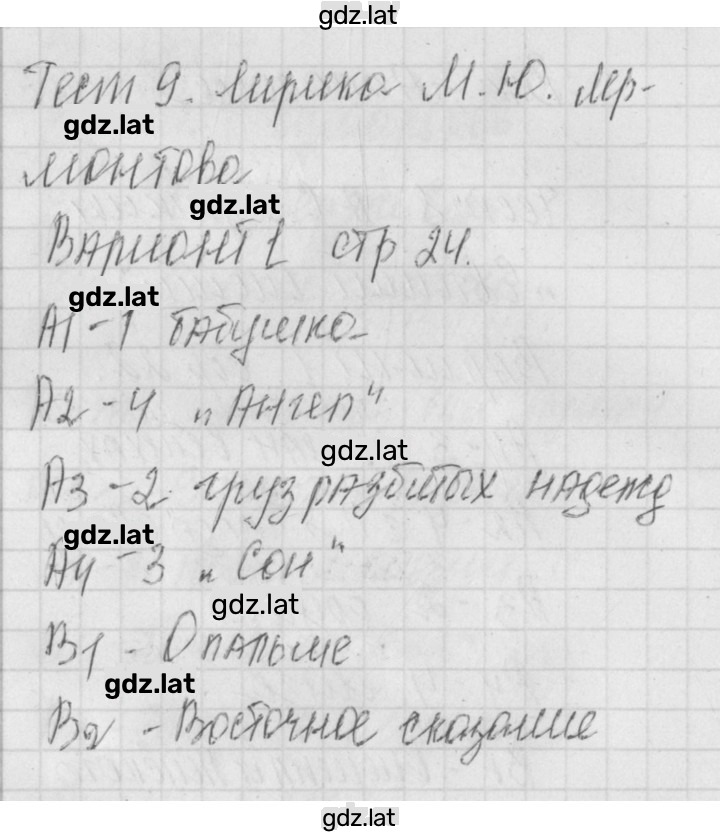 gdz.lat
Тест 9. Лирика М.Ю. Лер-
gdz.lat
монтова
gdz.lat
Вариант 1 стр 24.
gdz.lat
А1-1 бабушка
А2-4 "Ангел"
gdz.lat
А3-2 груз разбитых надежд
gdz.lat
А4-3 "Сон"
gdz.lat
В1 - О пальме
gdz.lat
В2 - Восточное сказание
gdz.lat